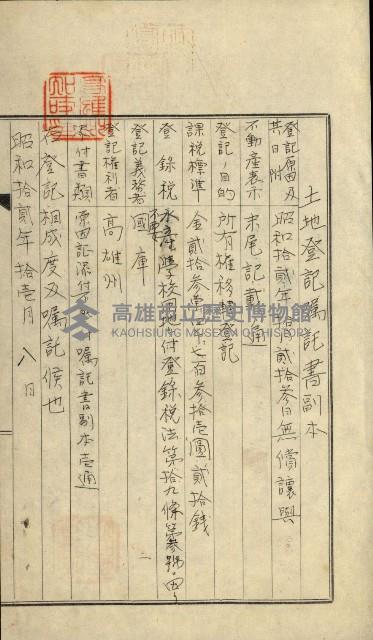 土地登記嘱託書副本
登記原因及其日附 昭和拾貳年 月貳拾参日無償讓與
不動産表示 末尾記載 通
登記ノ目的 所有權移轉登記
課税標準 金貳拾参 七百参拾壱圓貳拾錢
登錄税 水産學校 地 付登錄税法第拾九條第参號 四
登記義務者 國庫
登記權利者 高雄州
添付書類 原因証 嘱託書副本壱通
登記相成度及嘱託候也
昭和拾貳年拾壱月八日
高雄市立歷史博物館
KAOHSIUNG MUSEUM OF HISTORY